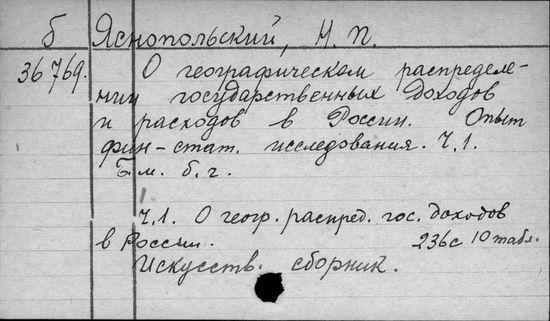 б Яснопольский, Н. П.
36769. О географическом распределе-
нии государственных доходов
и расходов в России. Опыт
фин-стат. исследования. Ч.1.
Б. м. б. г.
Ч.1. О геогр. распред. гос. доходов
в России. 236с 10 табл.
Искусств. сборник.